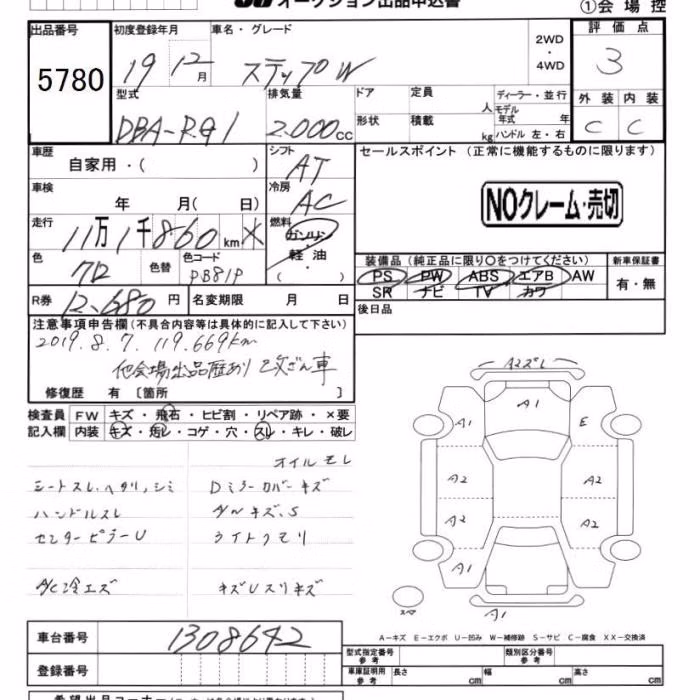 オークション出品申込書
①会場控
出品番号 初度登録年月 車名・グレード 2WD ・ 4WD 評価点
5780 19 12月 ステップW 3
型式 排気量 ドア 定員 人 ディーラー・並行 外装 内装
DBA-RG1 2.000cc 形状 積載 kg モデル年式 年 ハンドル 左・右 C C
車歴 シフト セールスポイント (正常に機能するものに限ります)
自家用・( ) AT
車検 冷房
年 月( 日) AC NOクレーム・売切
走行 燃料
11万1千860km ガソリン
軽油
( )
色 色替 色コード 装備品(純正品に限り○をつけてください) 新車保証書
クロ PB81P PS PW ABS エアB AW 有・無
SR ナビ TV カワ
R券 12,680円 名変期限 月 日 後日品
注意事項申告欄(不具合内容等は具体的に記入して下さい)
2019.8.7. 119.669km
他会場出品歴あり
修復歴 有 〔箇所 〕
検査員 FW キズ・飛石・ヒビ割・リペア跡・×要
記入欄 内装 キズ・汚レ・コゲ・穴・スレ・キレ・破レ
オイルモレ
シートスレ、ヘタリ、シミ Dミラーカバーキズ
ハンドルスレ A/Wキズ、S
センターピラーU ライトクモリ
A/C冷エズ キズUスリキズ
A2ズレ
A1
A1 E
A2 A2
A2 A2
A1 A1
スペア A1
A-キズ E-エクボ U-凹み W-補修跡 S-サビ C-腐食 XX-交換済
車台番号 1308642
型式指定番号 参考 類別区分番号 参考
登録番号 車庫証明用 参考 長さ cm 幅 cm 高さ cm